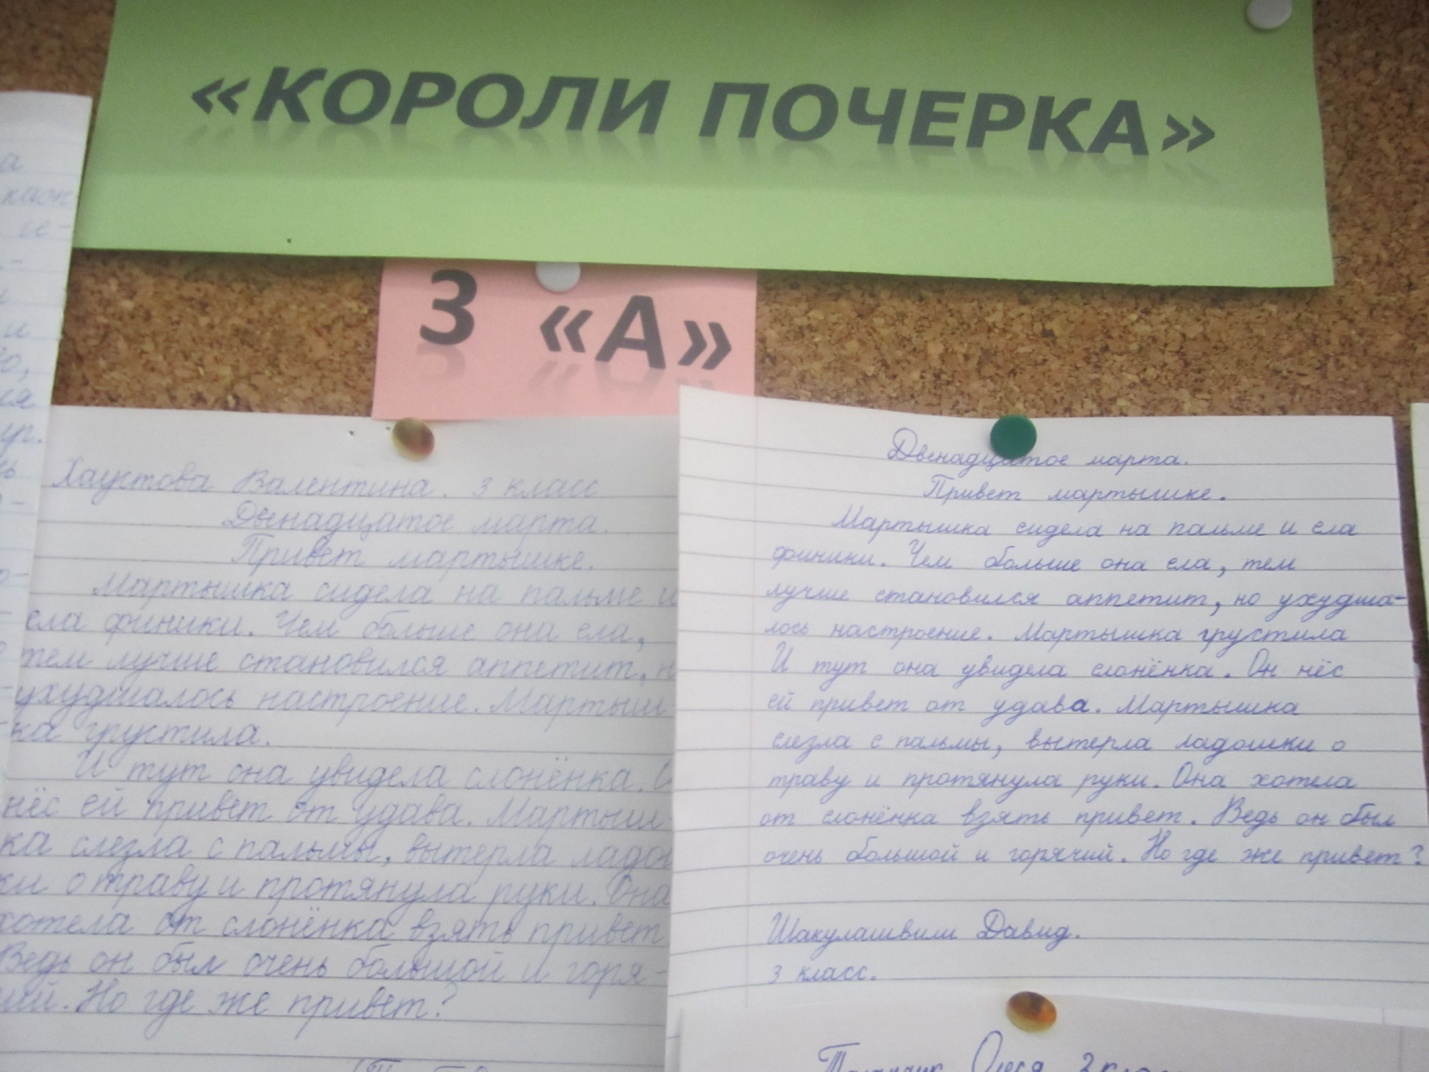 «КОРОЛИ ПОЧЕРКА»
3 «А»
Хаустова Валентина. 3 класс
Двенадцатое марта.
Привет мартышке.
Мартышка сидела на пальме и
ела финики. Чем больше она ела,
тем лучше становился аппетит, н
ухудшалось настроение. Мартыш
ка грустила.
И тут она увидела слонёнка. О
нёс ей привет от удава. Мартыш
ка слезла с пальмы, вытерла ладош
ки о траву и протянула руки. Она
хотела от слонёнка взять привет
Ведь он был очень большой и горя-
чий. Но где же привет?
Двенадцатое марта.
Привет мартышке.
Мартышка сидела на пальме и ела
финики. Чем больше она ела, тем
лучше становился аппетит, но ухудша-
лось настроение. Мартышка грустила
И тут она увидела слонёнка. Он нёс
ей привет от удава. Мартышка
слезла с пальмы, вытерла ладошки о
траву и протянула руки. Она хотела
от слонёнка взять привет. Ведь он был
очень большой и горячий. Но где же привет?
Шакулашвили Давид.
3 класс.
Олеся 3 клас